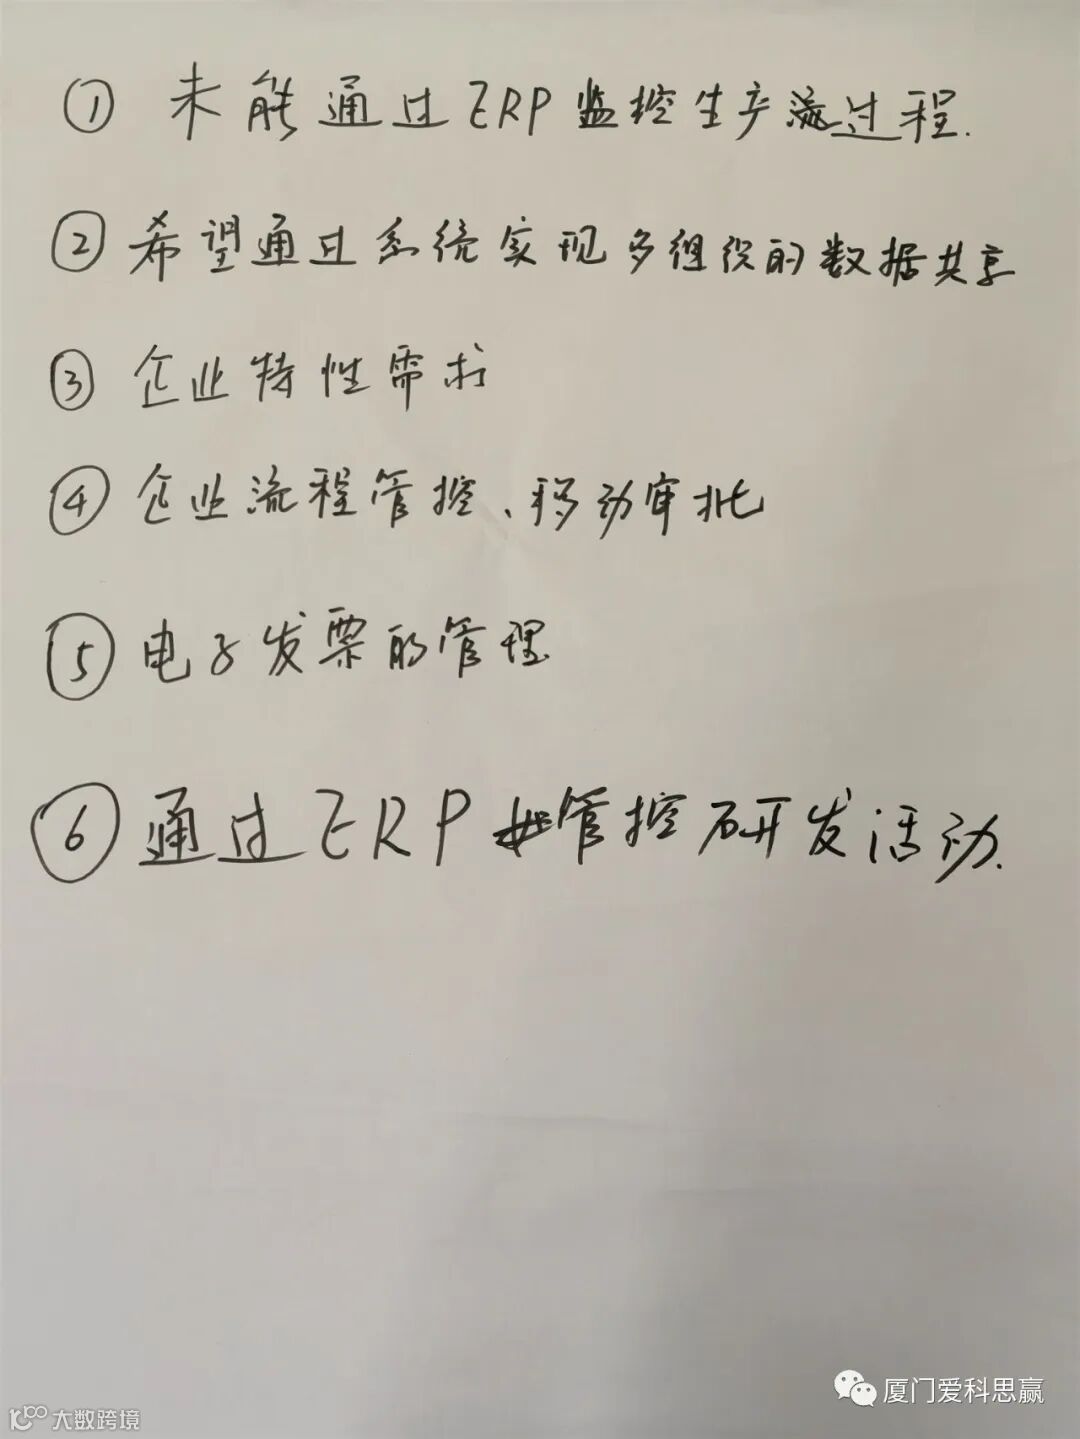 ① 未能通过ERP监控生产过程.
② 希望通过系统实现多组织的数据共享
③ 企业特性需求
④ 企业流程管控、移动审批
⑤ 电子发票的管理
⑥ 通过ERP管控研发活动.
厦门爱科思赢
大数跨境